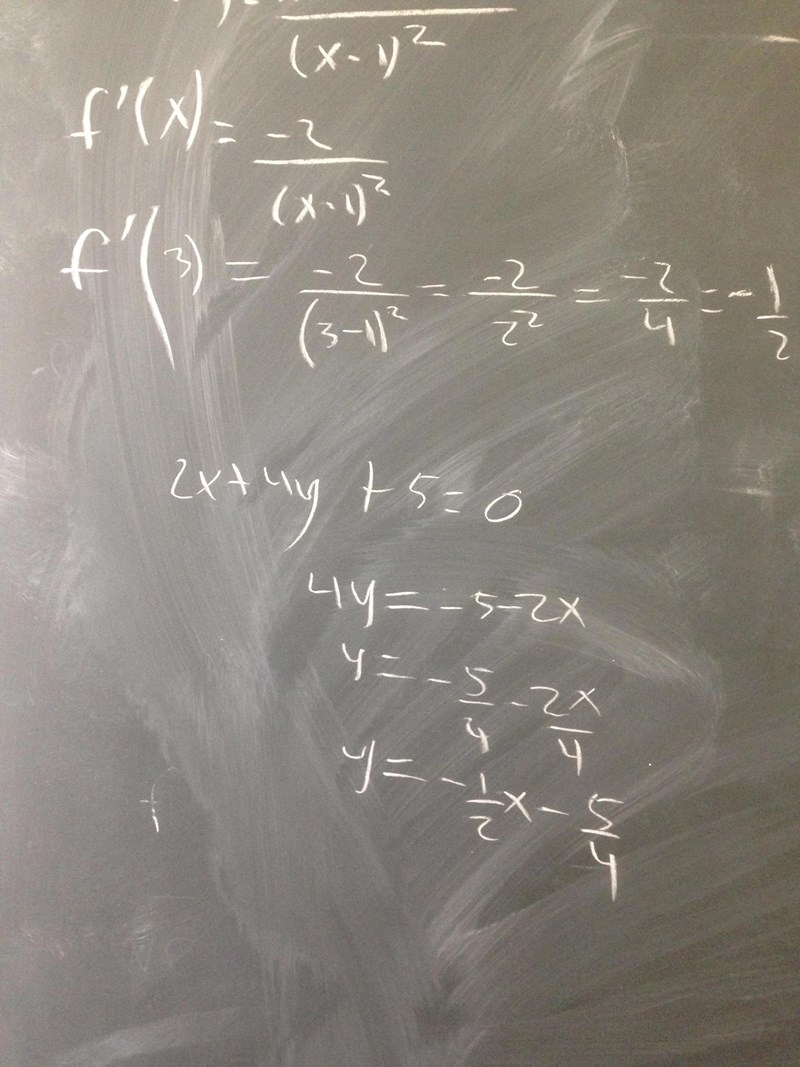 (x-1)²
f'(x) = -2/(x-1)²
f'(3) = -2/(3-1)² = -2/2² = -2/4 = -1/2
2x+4y+5=0
4y=-5-2x
y=-5/4-2x/4
y=-1/2x-5/4